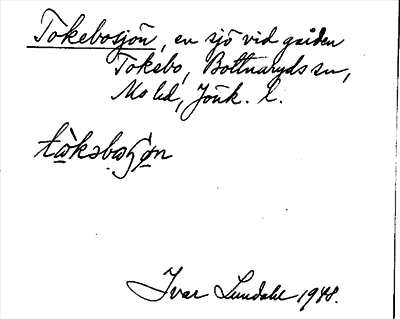 Tokebosjön, en sjö vid gården
Tokebo, Bottnaryds sn,
Mo hd, Jönk. l.
tωkəbωʃøn
Ivar Lundahl 1948.